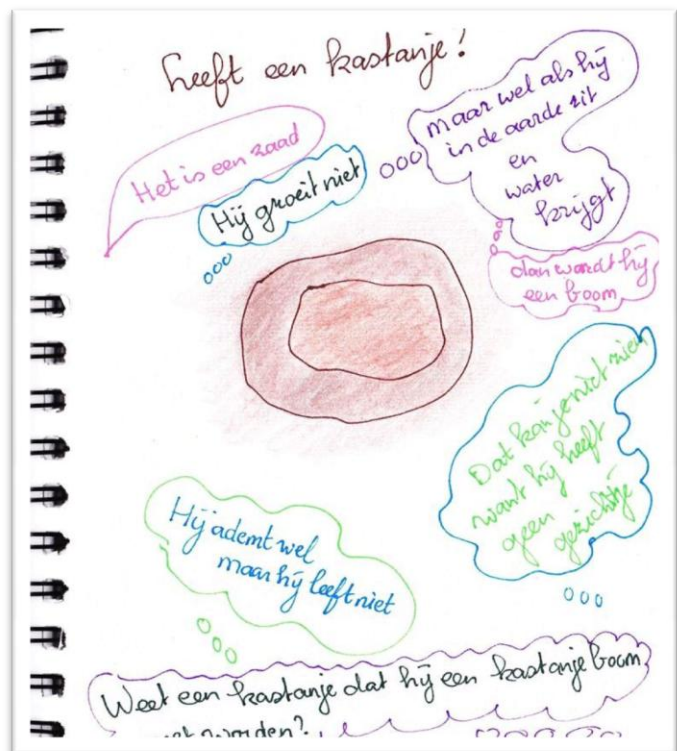 heeft een kastanje!
Het is een zaad
Hij groeit niet
maar wel als hij
in de aarde zit
en
water
krijgt
dan wordt hij
een boom
Dat kan je niet zien
want hij heeft
geen
gezichtje
Hij ademt wel
maar hij leeft niet
Weet een kastanje dat hij een kastanjeboom
worden?